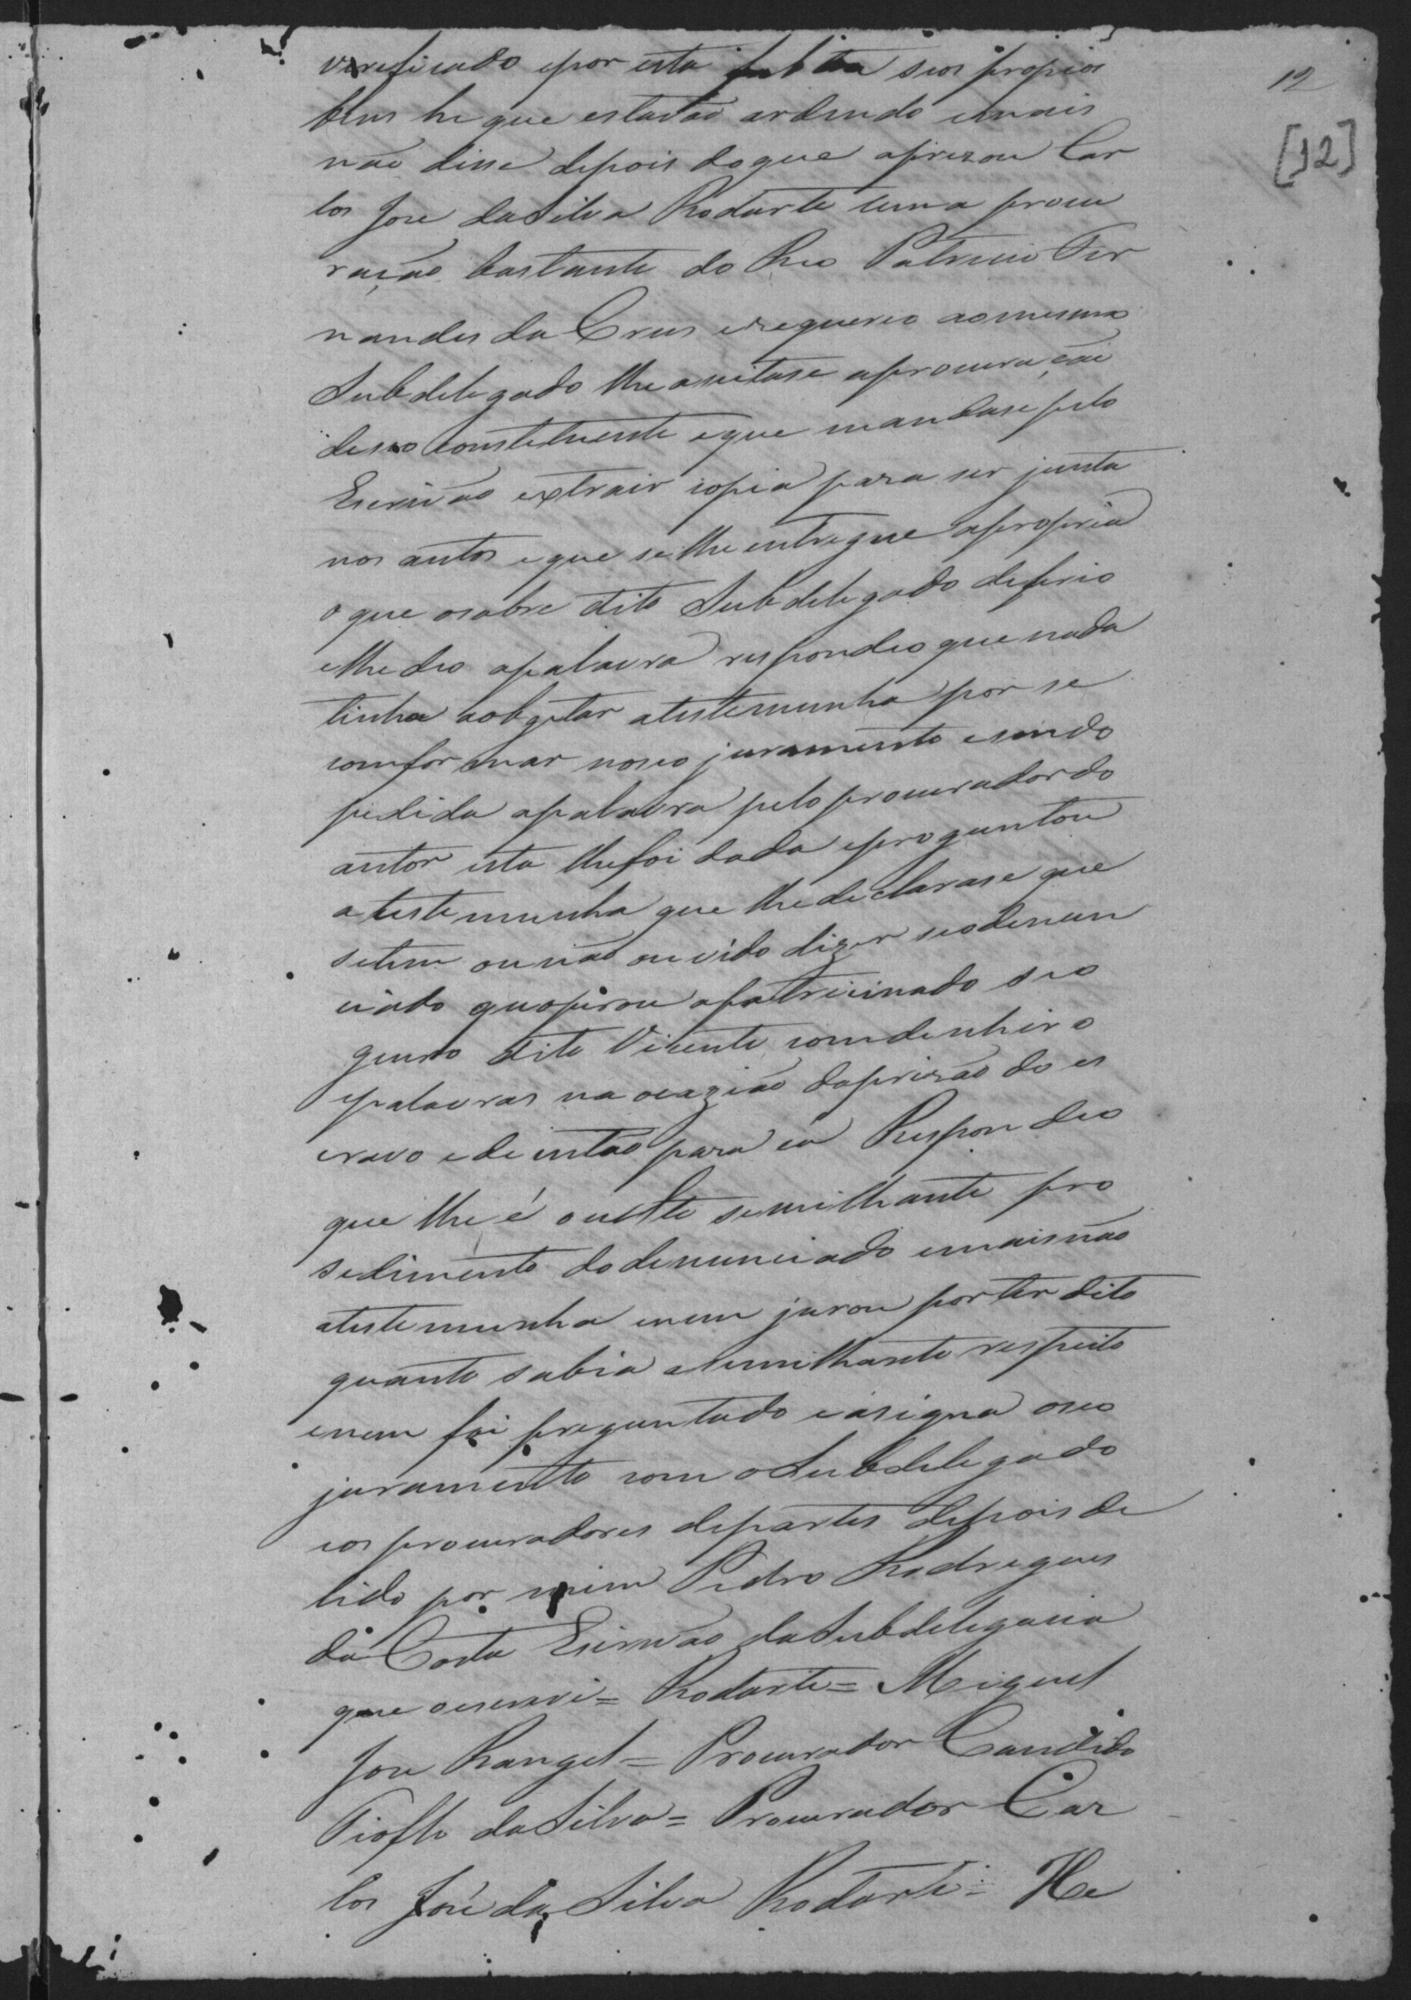 12
[12]
verificado e por esta seos propios
bens he que estavão ardendo e mais
não disse depois do que aprezou Car
los Jose da Silva Rodarte uma procu
ração bastante do Reo Patricio Fer
nandes da Crus e requereo ao mesmo
Subdelegado lhe aseitase a procuração
de seo constetuente e que mandase pelo
Escrivão extrair copia para ser junta
nos autos e que se lhe entregue a propria
o que o sobre dito Subdelegado deferio
e lhe deo a palavra respondeo que nada
tinha a obgetar a testemunha por se
comformar no seo juramento e sendo
pedida a palavra pelo procurador do
autor esta lhe foi dada e proguntou
a testemunha que lhe declarase que
se tem ou não ouvido dizer se o denun
ciado apatricinado seo
genro dito Vicente com denheiro
e palavras na ocazião da prizão do es
cravo e de então para cá Respondeo
que lhe é oculto semilhante pro
sedimento do denunciado e mais não
a testemunha e nem jurou por ter dito
quanto sabia a semilhante respeito
e nem foi preguntado e asigna o seo
juramento com o Subdelegado
e os procuradores de partes depois de
lido por mim Pedro Rodregues
da Costa Escrivão da Subdelegacia
que o escrevi = Rodarte = Miguel
Jose Rangel = Procurador Candido
Tiofto da Silva = Procurador Car
los José da Silva Rodarte = He